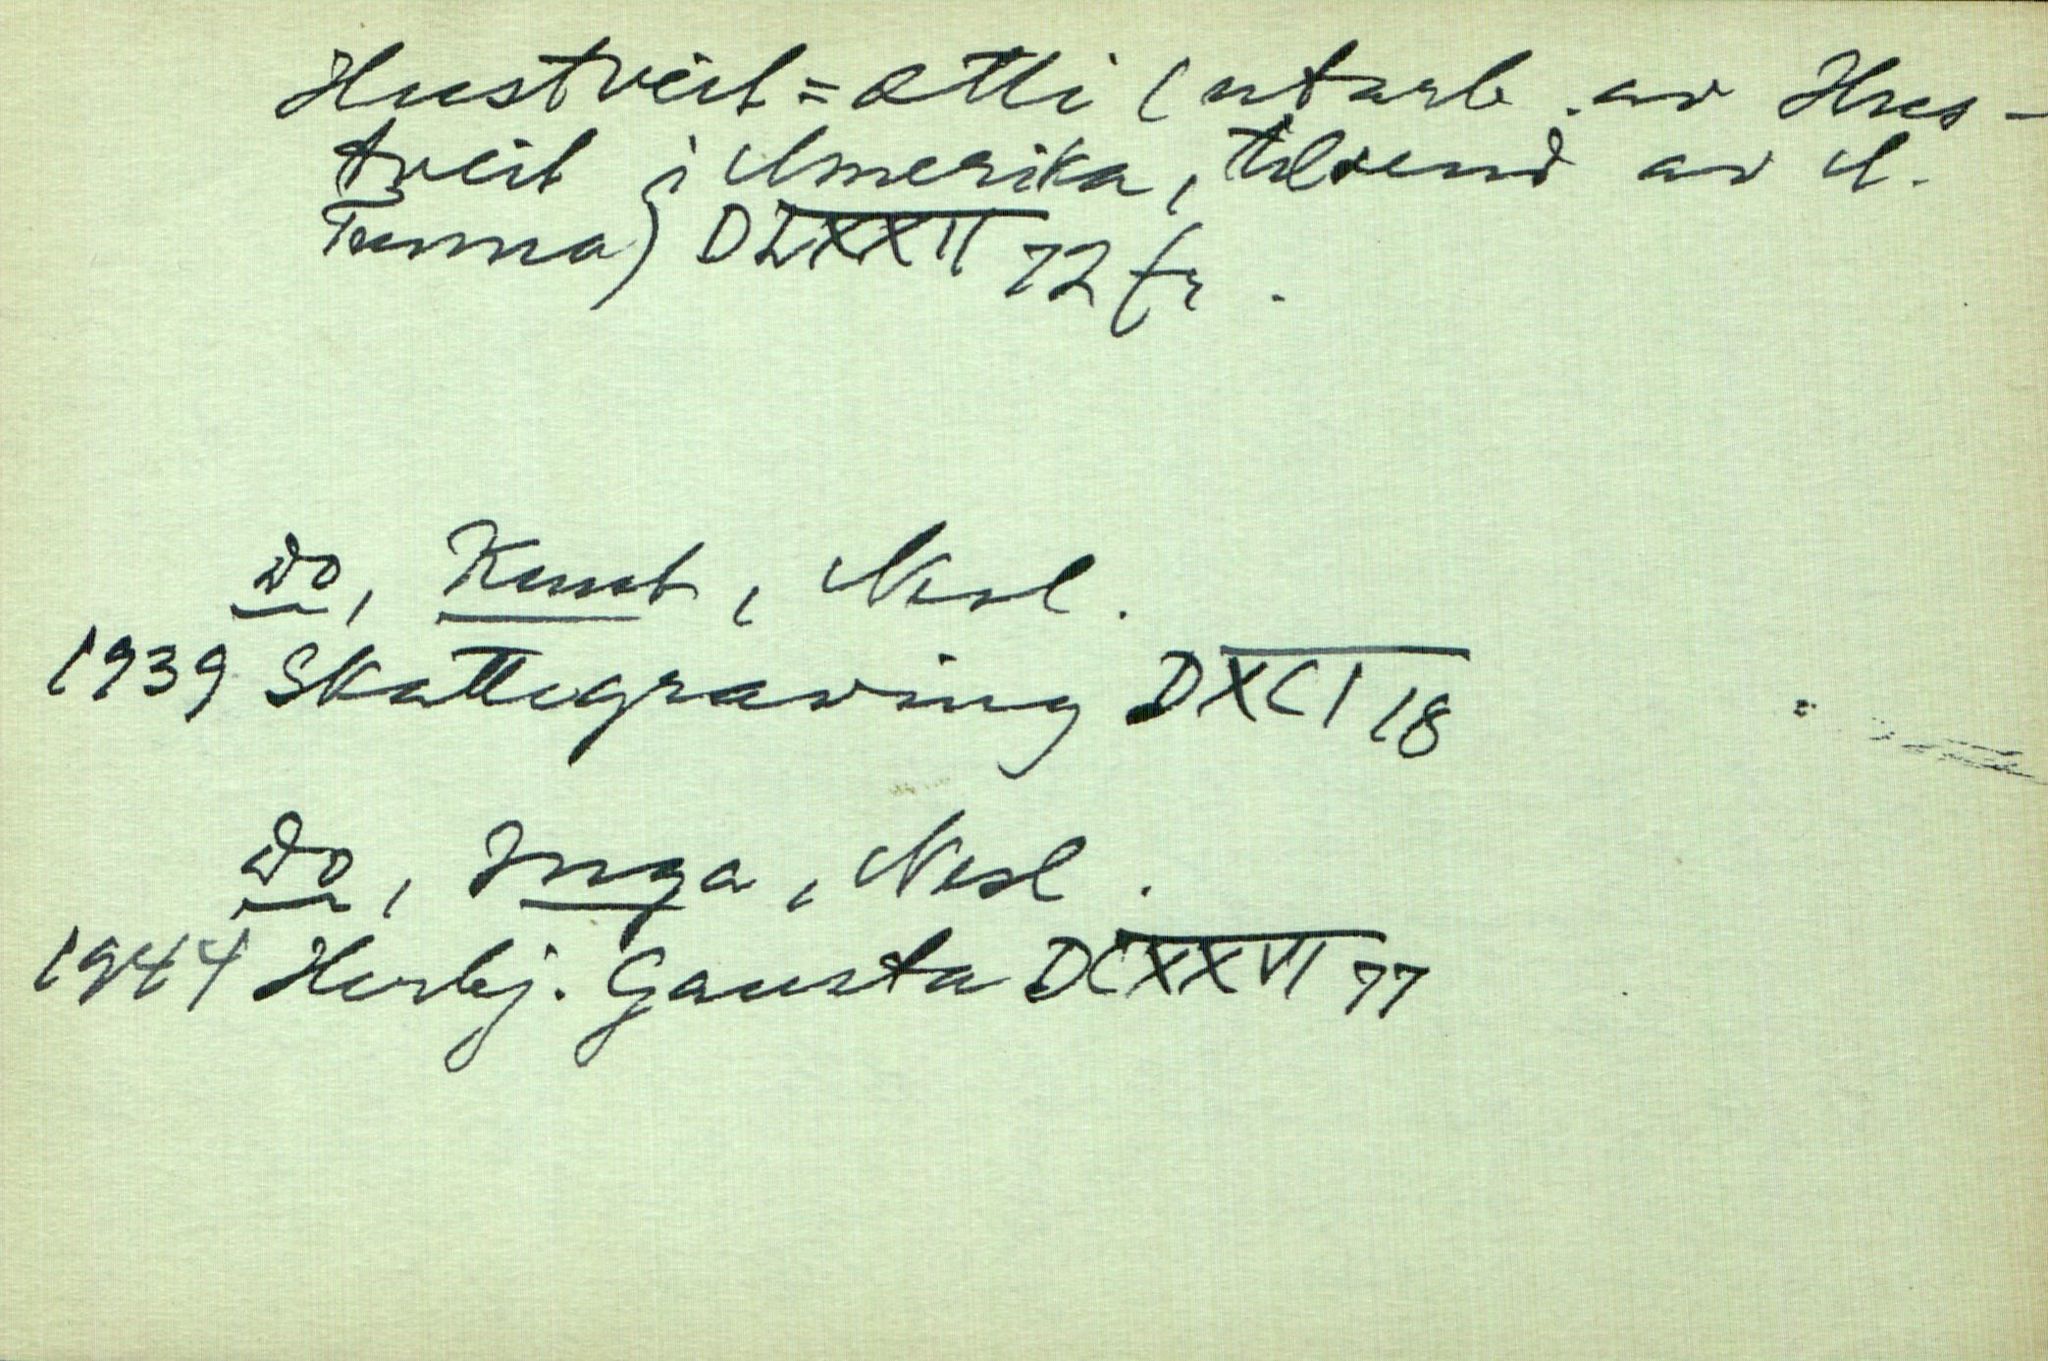 Hustveit=ætti (utarb. av Hus-
tveit i Amerika, tilsend av A.
Tunna) DLXXVII 72 fr.
Do, Knut, Nesl.
1939 Skattegraving DXCI 18
Do, Inga, Nesl.
1944 Herbj. Gausta DCXXVI 77